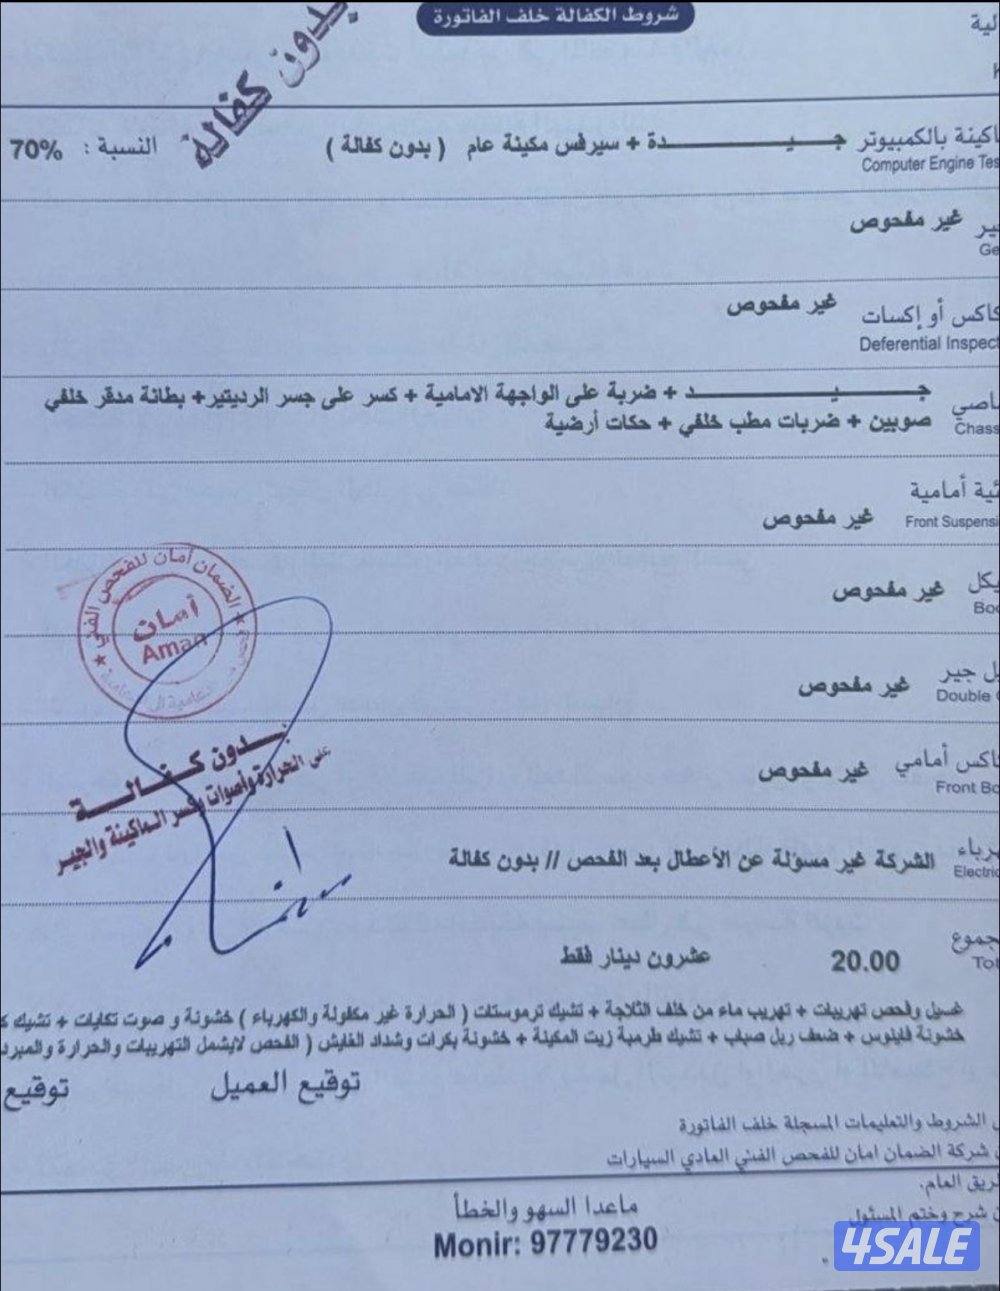 شروط الكفالة خلف الفاتورة
بدون كفالة
لية
اكينة بالكمبيوتر جـــيـــدة + سيرفس مكينة عام ( بدون كفالة ) النسبة : 70%
Computer Engine Tes
ير غير مفحوص
Ge
كاكس أو إكسات غير مفحوص
Deferential Inspect
اصي جـــيـــد + ضربة على الواجهة الامامية + كسر على جسر الرديتير+ بطانة مدقر خلفي
Chass صوبين + ضربات مطب خلفي + حكات أرضية
ئية أمامية غير مفحوص
Front Suspensi
يكل غير مفحوص
Bo
الضمان أمان للفحص الفني
أمان
Aman
ل جير غير مفحوص
Double
بدون كفالة
على الحرارة وأصوات وكسر الماكينة والجير
اكس أمامي غير مفحوص
Front Bo
رباء الشركة غير مسؤلة عن الأعطال بعد الفحص // بدون كفالة
Electric
جموع 20.00 عشرون دينار فقط
Tot
غسيل وفحص تهريبات + تهريب ماء من خلف الثلاجة + تشيك ترموستات ( الحرارة غير مكفولة والكهرباء ) خشونة و صوت تكايات + تشيك ك
خشونة فايلوس + ضعف ربل صباب + تشيك طرمبة زيت المكينة + خشونة بكرات وشداد القايش ( الفحص لايشمل التهريبات والحرارة والمبرد
توقيع العميل توقيع
الشروط والتعليمات المسجلة خلف الفاتورة
شركة الضمان امان للفحص الفني العادي السيارات
ريق العام.
ن شرح وختم المسئول
ماعدا السهو والخطأ
Monir: 97779230
4SALE